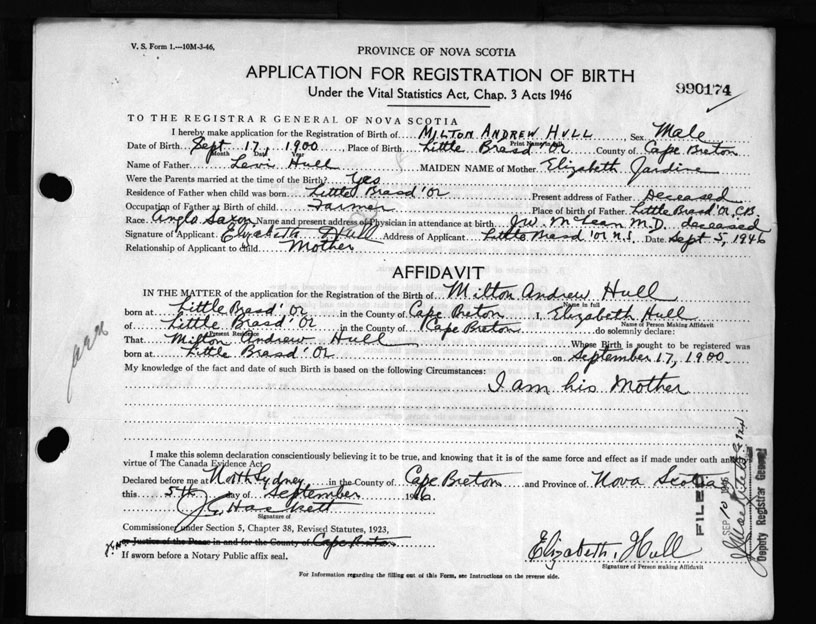 V. S. Form 1.—10M-3-46.
PROVINCE OF NOVA SCOTIA
APPLICATION FOR REGISTRATION OF BIRTH
990174
Under the Vital Statistics Act, Chap. 3 Acts 1946
TO THE REGISTRAR GENERAL OF NOVA SCOTIA
I hereby make application for the Registration of Birth of MILTON ANDREW HULL, Sex Male
Print Name in full
Date of Birth Sept 17, 1900, Place of Birth Little Brasd'Or County of Cape Breton
Month Day Year
Name of Father Levi Hull MAIDEN NAME of Mother Elizabeth Jardine
Were the Parents married at the time of the Birth? Yes
Residence of Father when child was born Little Brasd'Or Present address of Father Deceased
Occupation of Father at Birth of child Farmer Place of birth of Father Little Brasd'Or C.B.
Race Anglo Saxon Name and present address of Physician in attendance at birth McLean M.D. deceased
Signature of Applicant Elizabeth Hull Address of Applicant Little Brasd'Or N.S. Date Sept 5, 1946
Relationship of Applicant to child Mother
AFFIDAVIT
IN THE MATTER of the application for the Registration of the Birth of Milton Andrew Hull
Name in full
born at Little Brasd'Or in the County of Cape Breton I, Elizabeth Hull
Name of Person Making Affidavit
of Little Brasd'Or in the County of Cape Breton do solemnly declare:
Present Residence
That Milton Andrew Hull Whose Birth is sought to be registered was
born at Little Brasd'Or on September 17, 1900.
My knowledge of the fact and date of such Birth is based on the following Circumstances:
I am his Mother
I make this solemn declaration conscientiously believing it to be true, and knowing that it is of the same force and effect as if made under oath and
virtue of The Canada Evidence Act.
Declared before me at North Sydney in the County of Cape Breton and Province of Nova Scotia
this 5th day of September 1946
J. G. Hackett
Signature of
Commissioner under Section 5, Chapter 38, Revised Statutes, 1923,
or Justice of the Peace in and for the County of Cape Breton
If sworn before a Notary Public affix seal.
Elizabeth Hull
Signature of Person making Affidavit
For Information regarding the filling out of this Form, see Instructions on the reverse side.
FILED
SEP 10 1946
Deputy Registrar General